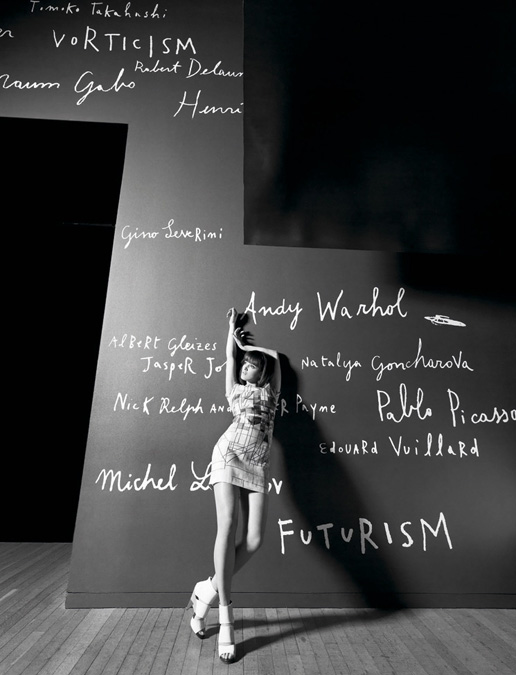 Tomoko Takahashi
VORTICISM
Robert Delaun
Naum Gabo
Henri
Gino Severini
Andy Warhol
Albert Gleizes
Jasper Jo
Natalya Goncharova
Nick Relph and
R Payne
Pablo Picasso
Edouard Vuillard
Michel L
ov
FUTURISM